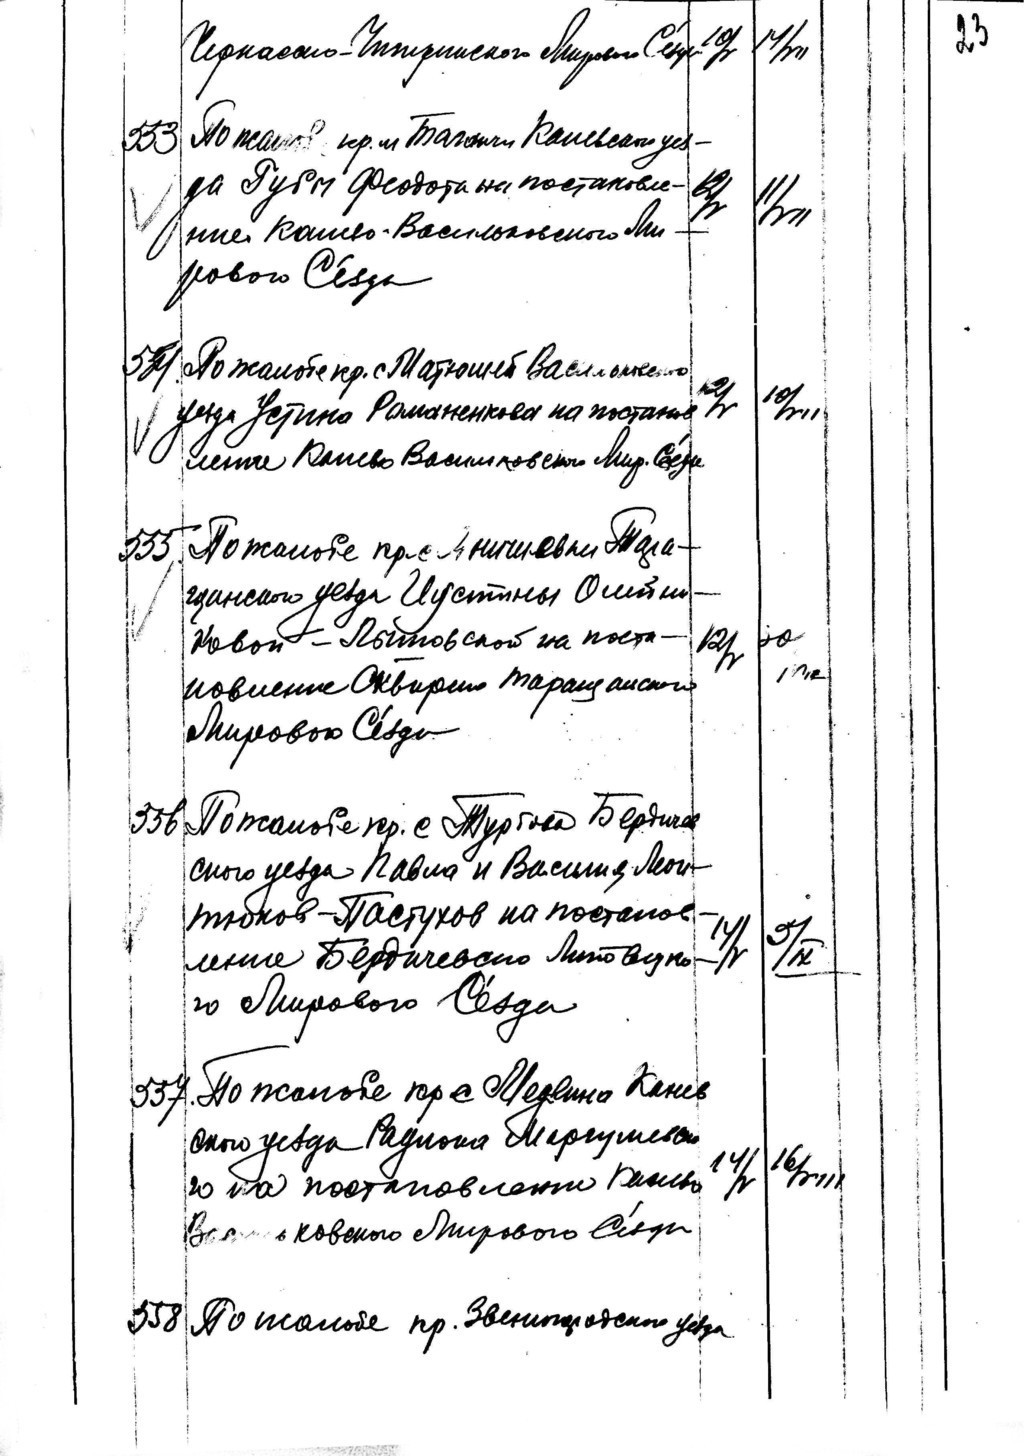 23
Черкасско-Чигиринского Мирового Съезда 10/V 14/VII
553 По жалобе кр. м Таганчи Каневского уез-
да Губы Феодота на постановле- 12/V 11/VII
ние Канево-Васильковского Ми-
рового Съезда
554. По жалобе кр. с Матюшей Васильковского
уезда Устина Романенкова на постанов 12/V 10/VII
ление Канево Васильковского Мир. Съезда
555. По жалобе кр. с Тара-
щанского уезда Иустины Олейни-
ковой - на поста- 12/V
новление Сквирско Таращанского
Мирового Съезда
556 По жалобе кр. с Турбова Бердичев
ского уезда Павла и Василия
- Пастухов на постанов-
ление Бердичевско Липовецко- 14/V 5/IX
го Мирового Съезда
557. По жалобе кр с Медвина Канев
ского уезда Радиона
го на постановление Канево 14/V 16/VIII
Васильковского Мирового Съезда
558 По жалобе кр. Звенигородского уезда